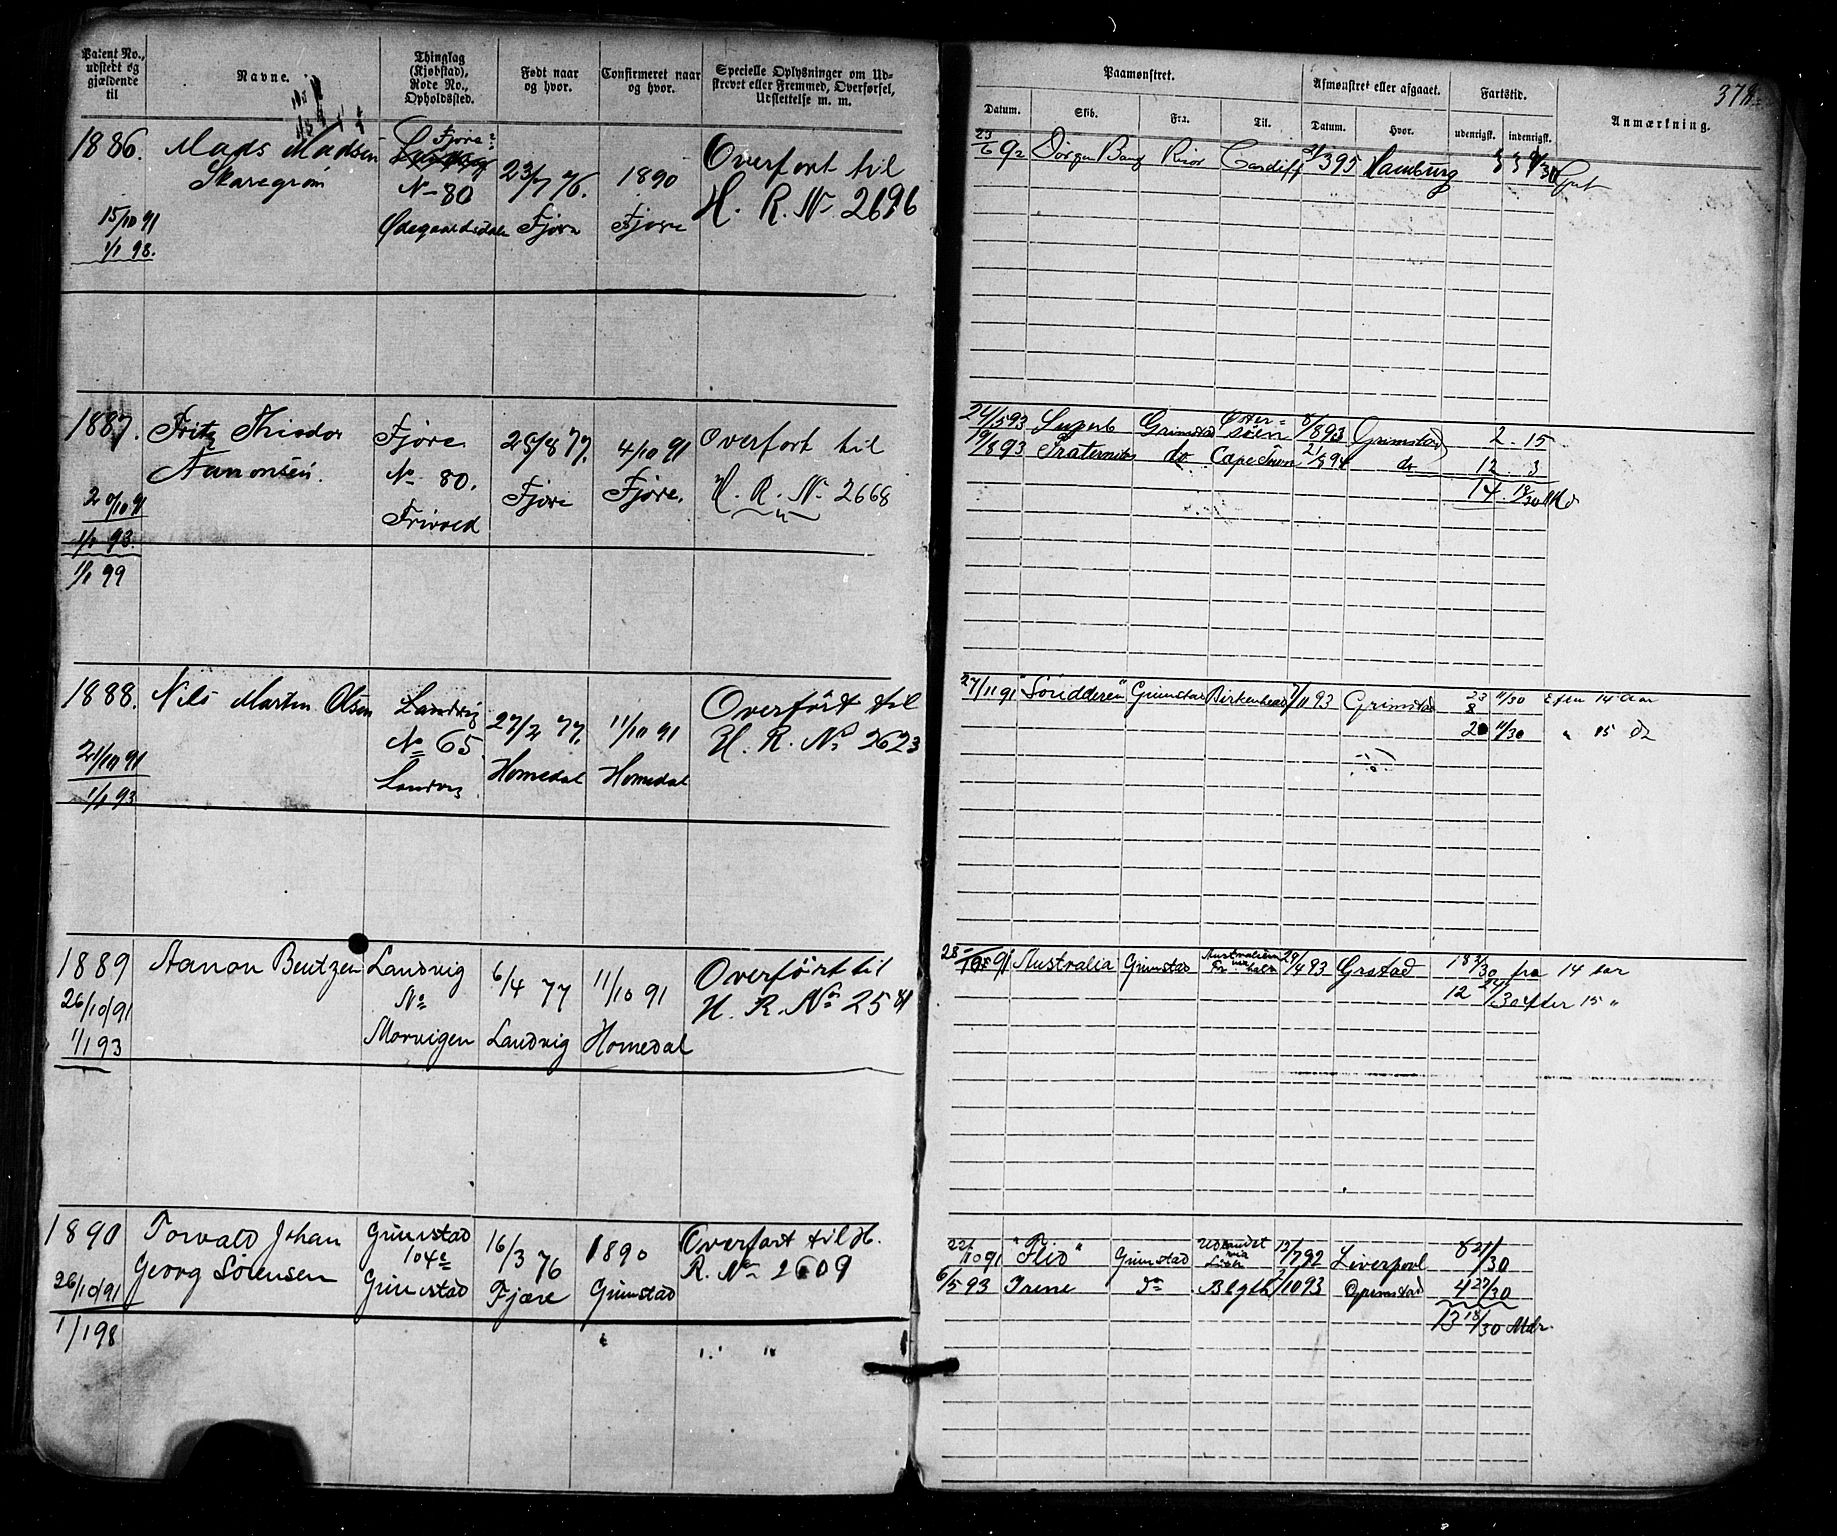 Patent No., udstedt og gjældende til
Navne.
Thinglag (Kjøbstad), Rode No., Opholdssted.
Født naar og hvor.
Confirmeret naar og hvor.
Specielle Oplysninger om Udskrevet eller Fremmed, Overførsel, Udslettelse m. m.
Paamønstret.
Afmønstret eller afgaaet.
Fartstid.
Anmærkning.
378
Datum.
Skib.
Fra.
Til.
Datum.
Hvor.
udenrigsk.
indenrigsk.
1886.
Mads Madsen
Fjøre
N- 80
23/7 76.
1890
Fjøre
Fjøre
15/10 91
1/1 98.
Overført til
H. R. No 2696
23/6 92
Risør
Cardiff
Hamburg
1887.
Fritz Thiodor
Aanonsen.
Fjøre
No 80.
Frivold
28/8 77.
Fjøre
4/10 91
Fjøre.
20/10 91
1/1 93.
1/1 99
Overført til
H. R. No 2668
24/5 93 Superb Grimstad Østersøen 8/8 93 Grimstad 2. 15
19/8 93 Fraternitas do 2/8 94 do 12 3
14. 18/30 Md
1888.
Nils Martin Olsen
Landvig
No 65
Landvig
27/2 77.
Homedal
11/10 91
Homedal
21/10 91
1/1 93
Overført til
H. R. No 2623
27/11 91
Grimstad Birkenhead 7/11 93 Grimstad 23 11/30 Efter 14 Aar
8
20 11/30 " 15 do
1889
Aanon Bentzen
Landvig
No
Morvigen
6/4 77
Landvig
11/10 91
Homedal
26/10 91
1/1 93
Overført til
H. R. No 2581
28/10 91 Australia Grimstad 29/4 93 Grstad 18 3/30 fra 14 aar
12 24/30 efter 15 "
1890
Torvald Johan
Georg Sörensen
Grimstad
104
Grimstad
16/3 76
Fjære
1890
Grimstad
26/10 91
1/1 98
Overført til H.
R. No 2609
22/10 91 "Flid" Grimstad Udlandet via 12/7 92 Liverpool 8 21/30
6/5 93 Irene do Blyth 2/10 93 Grimstad 4 27/30
13 18/30 Mdr.